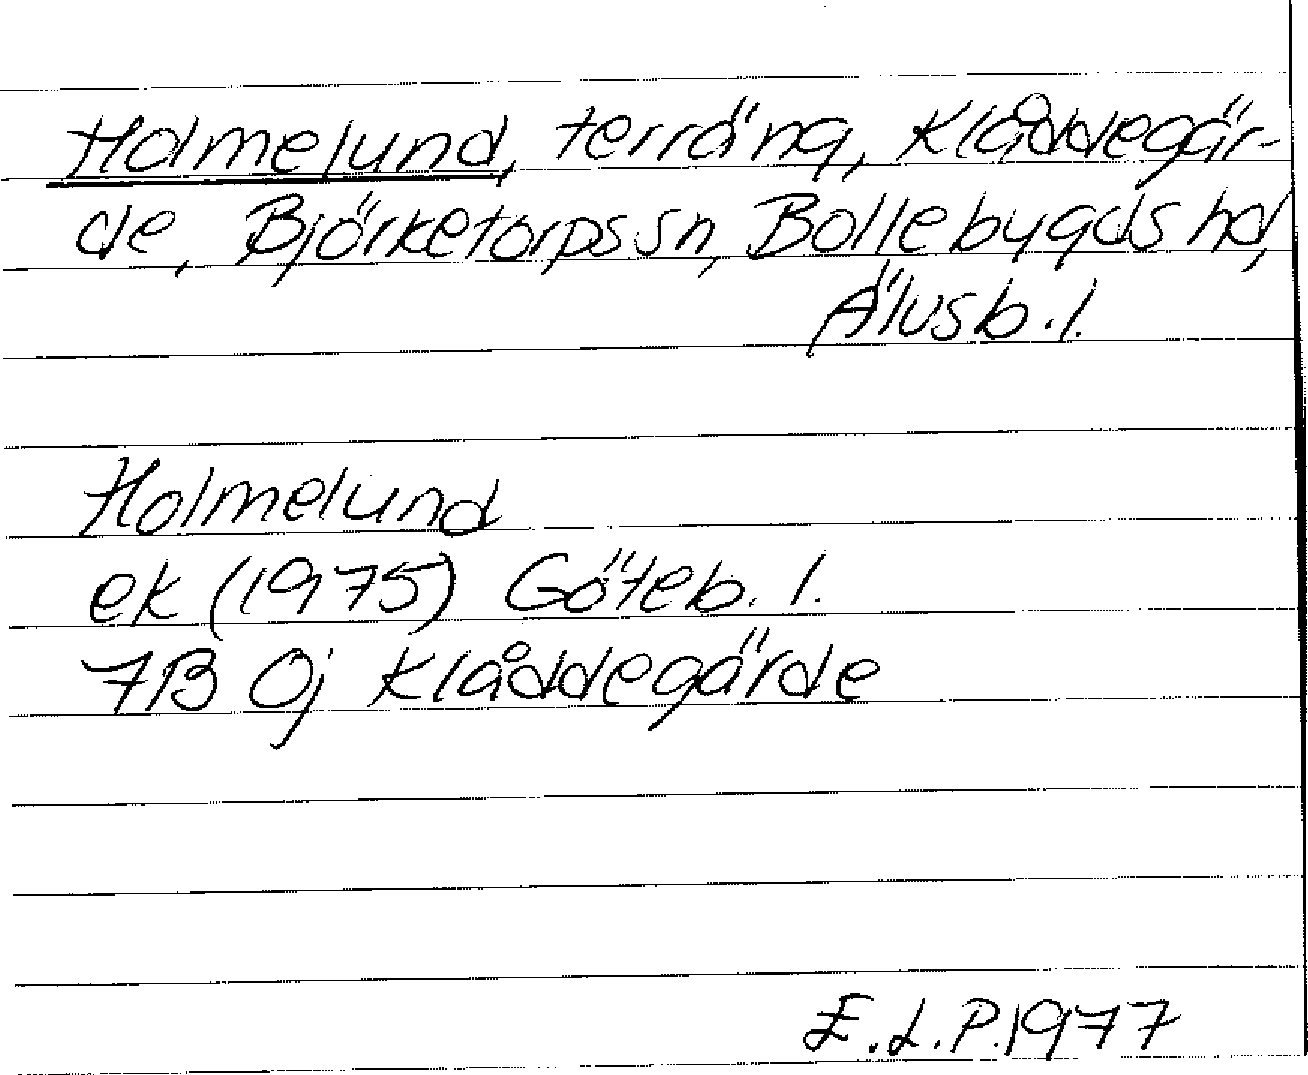 Holmelund, terräng, Klåddegär-
de, Björketorps sn, Bollebygds hd,
Älvsb. l.
Holmelund
ek (1975) Göteb. l.
7B 0j Klåddegärde
E.L.P. 1977